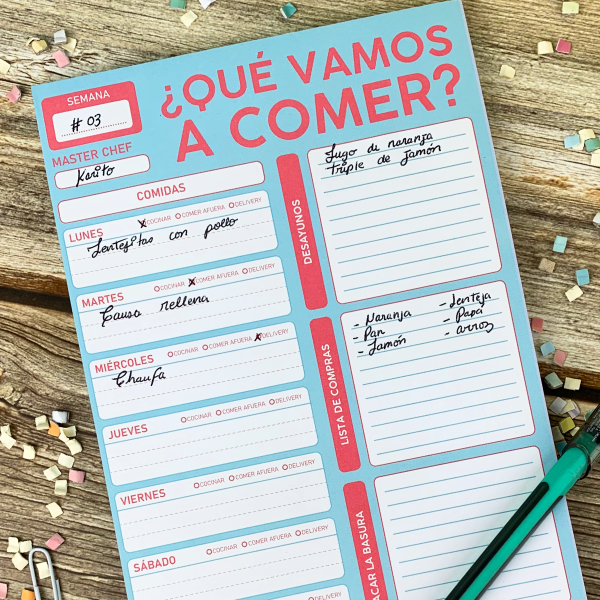 ¿QUÉ VAMOS
A COMER?
SEMANA
# 03
MASTER CHEF
Karito
COMIDAS
LUNES
X COCINAR O COMER AFUERA O DELIVERY
Lentejitas con pollo
MARTES
O COCINAR X COMER AFUERA O DELIVERY
Causa rellena
MIÉRCOLES
O COCINAR O COMER AFUERA X DELIVERY
Chaufa
JUEVES
O COCINAR O COMER AFUERA O DELIVERY
VIERNES
O COCINAR O COMER AFUERA O DELIVERY
SÁBADO
O COCINAR O COMER AFUERA O DELIVERY
DESAYUNOS
Jugo de naranja
triple de jamón
LISTA DE COMPRAS
- Naranja
- Pan
- Jamón
- Lenteja
- Papa
- arroz
ACAR LA BASURA